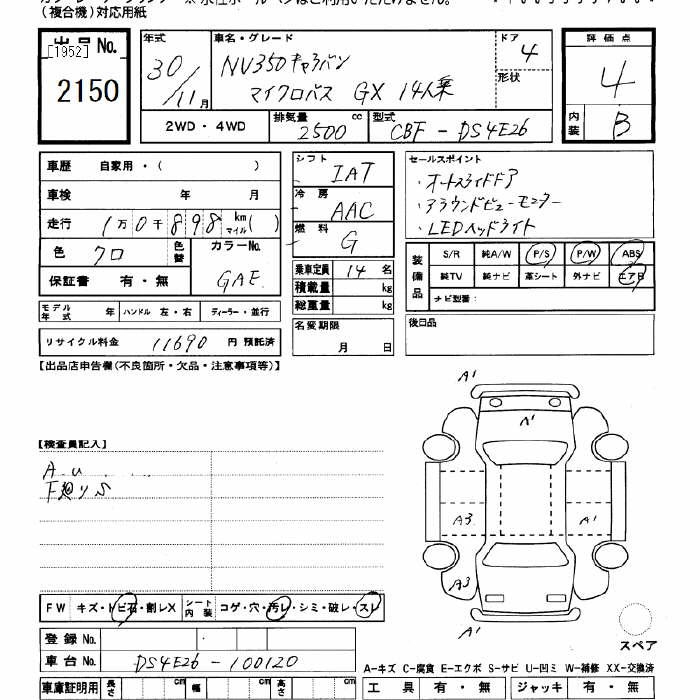 (複合機)対応用紙
出品No.
[1952]
2150
年式
30/11月
車名・グレード
NV350キャラバン
マイクロバス GX 14人乗
ドア
4
形状
評価点
4
内装
B
2WD・4WD
排気量 2500 cc
型式 CBF-DS4E26
車歴 自家用・( )
車検 年 月
走行 1万0千898 km マイル( )
色 クロ 色替 カラーNo. GAE
保証書 有・無
シフト IAT
冷房 AAC
燃料 G
乗車定員 14 名
積載量 kg
総重量 kg
セールスポイント
・オートスライドドア
・アラウンドビューモニター
・LEDヘッドライト
装備品
S/R 純A/W P/S P/W ABS
純TV 純ナビ 革シート 外ナビ エアB
ナビ型番:
モデル年式 年 ハンドル 左・右 ディーラー・並行
名変期限 月 日
後日品
リサイクル料金 11690 円 預託済
【出品店申告欄(不良箇所・欠品・注意事項等)】
A1
A1
【検査員記入】
F廻りS
A3
A1
A3
A1
FW キズ・トビ石・割レX
シート内装 コゲ・穴・汚レ・シミ・破レ・スレ
スペア
登録No.
車台No. DS4E26-100120
A—キズ C—腐食 E—エクボ S—サビ U—凹ミ W—補修 XX—交換済
車庫証明用 長さ cm 幅 cm 高さ cm
工具 有・無 ジャッキ 有・無